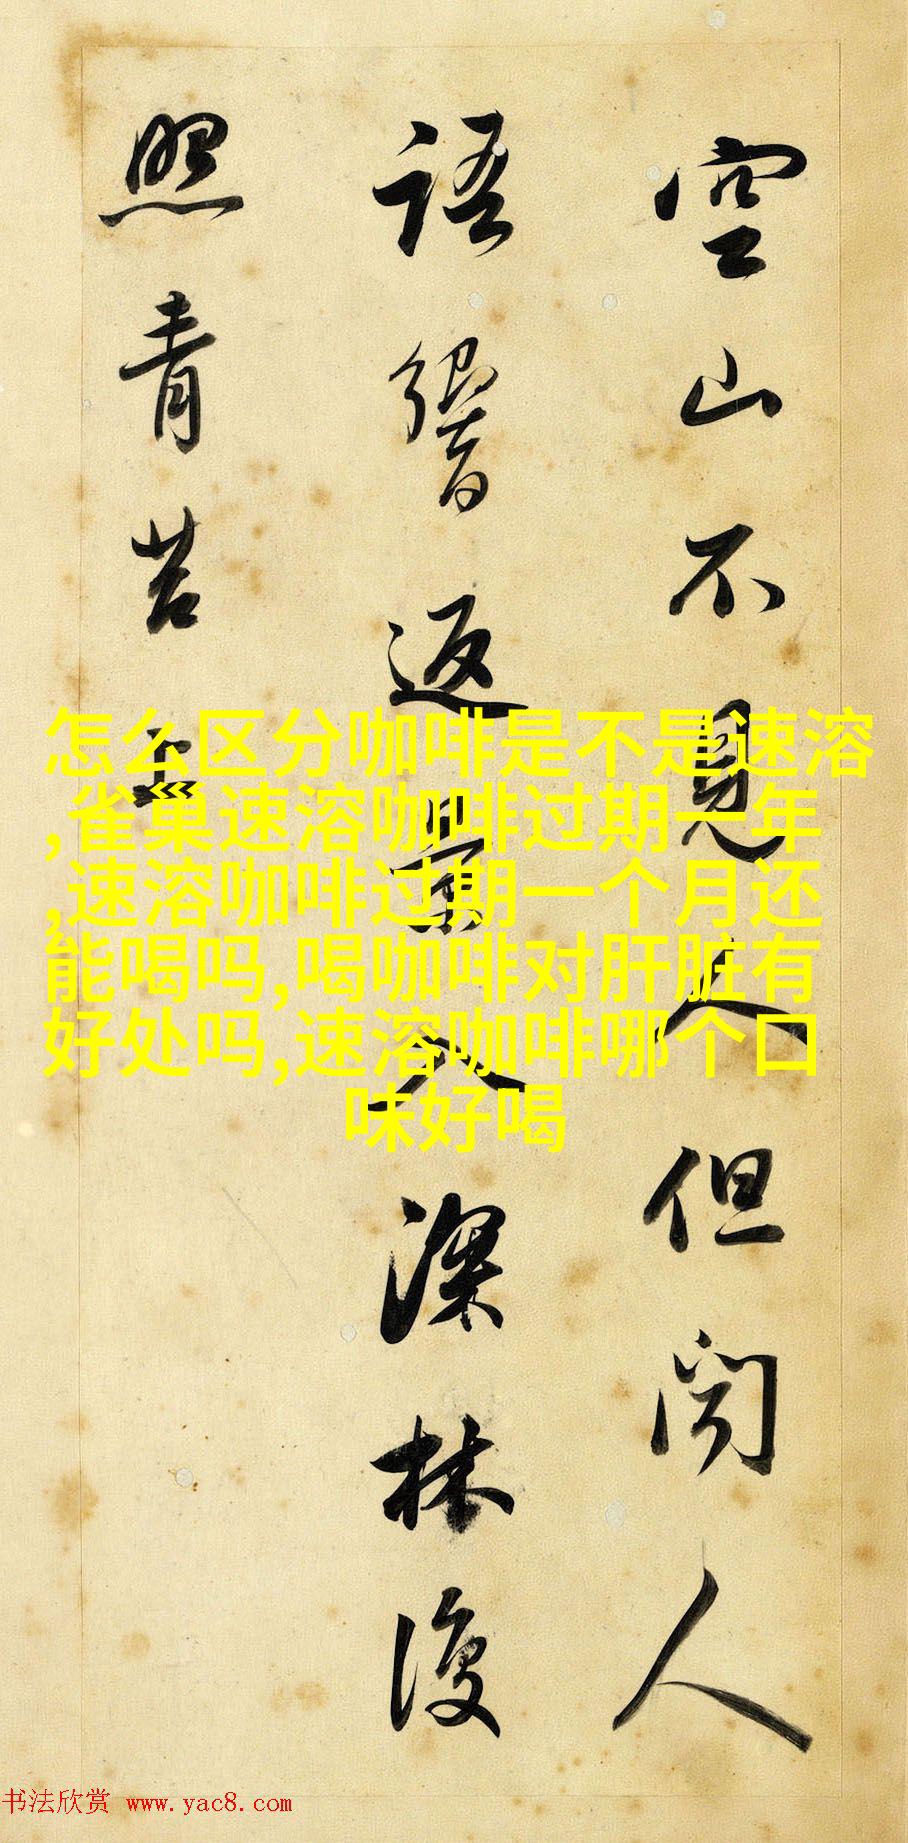 空山不見人但闻人
語響返景入深林復
照青苔上
怎么区分咖啡是不是速溶
,雀巢速溶咖啡过期一年
,速溶咖啡过期一个月还
能喝吗,喝咖啡对肝脏有
好处吗,速溶咖啡哪个口
味好喝
书法欣赏 www.yac8.com